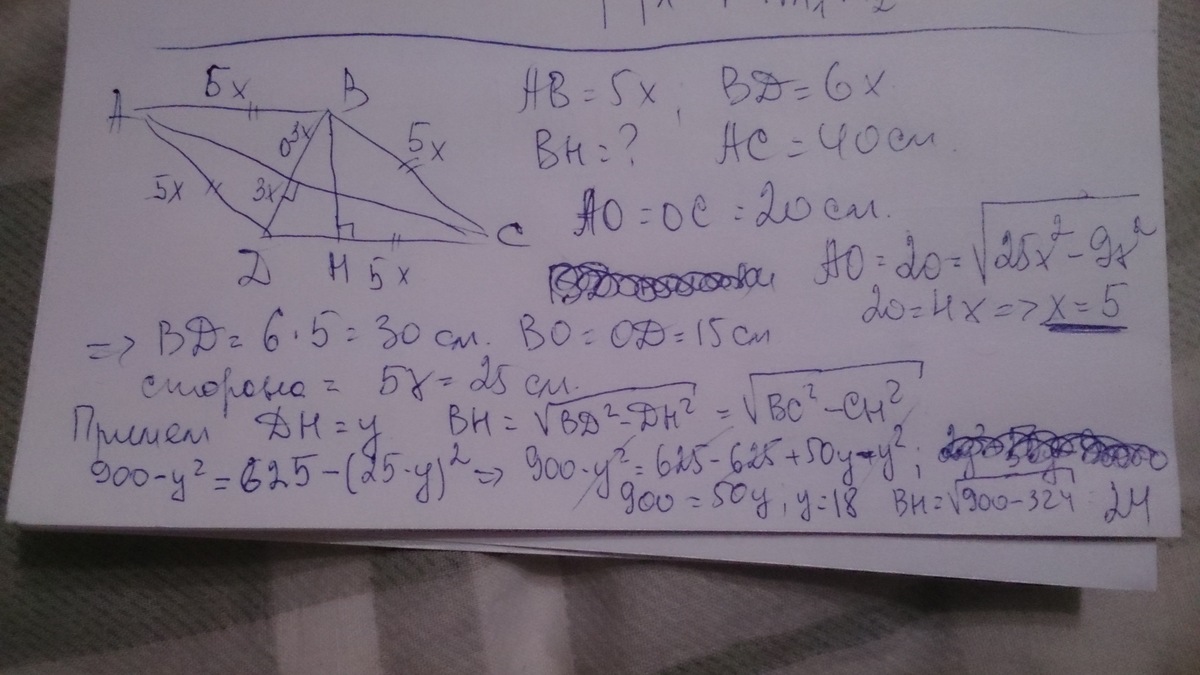 A 5x B
O 3x 5x
5x 3x
D H 5x C
AB = 5x; BD = 6x
BH = ? AC = 40 см.
AO = OC = 20 см.
AO = 20 = √25x² - 9x²
20 = 4x => x = 5
=> BD = 6·5 = 30 см. BO = OD = 15 см
сторона = 5x = 25 см.
Примем DH = y BH = √BD² - DH² = √BC² - CH²
900 - y² = 625 - (25 - y)² => 900 - y² = 625 - 625 + 50y - y²;
900 = 50y; y = 18 BH = √900 - 324 24